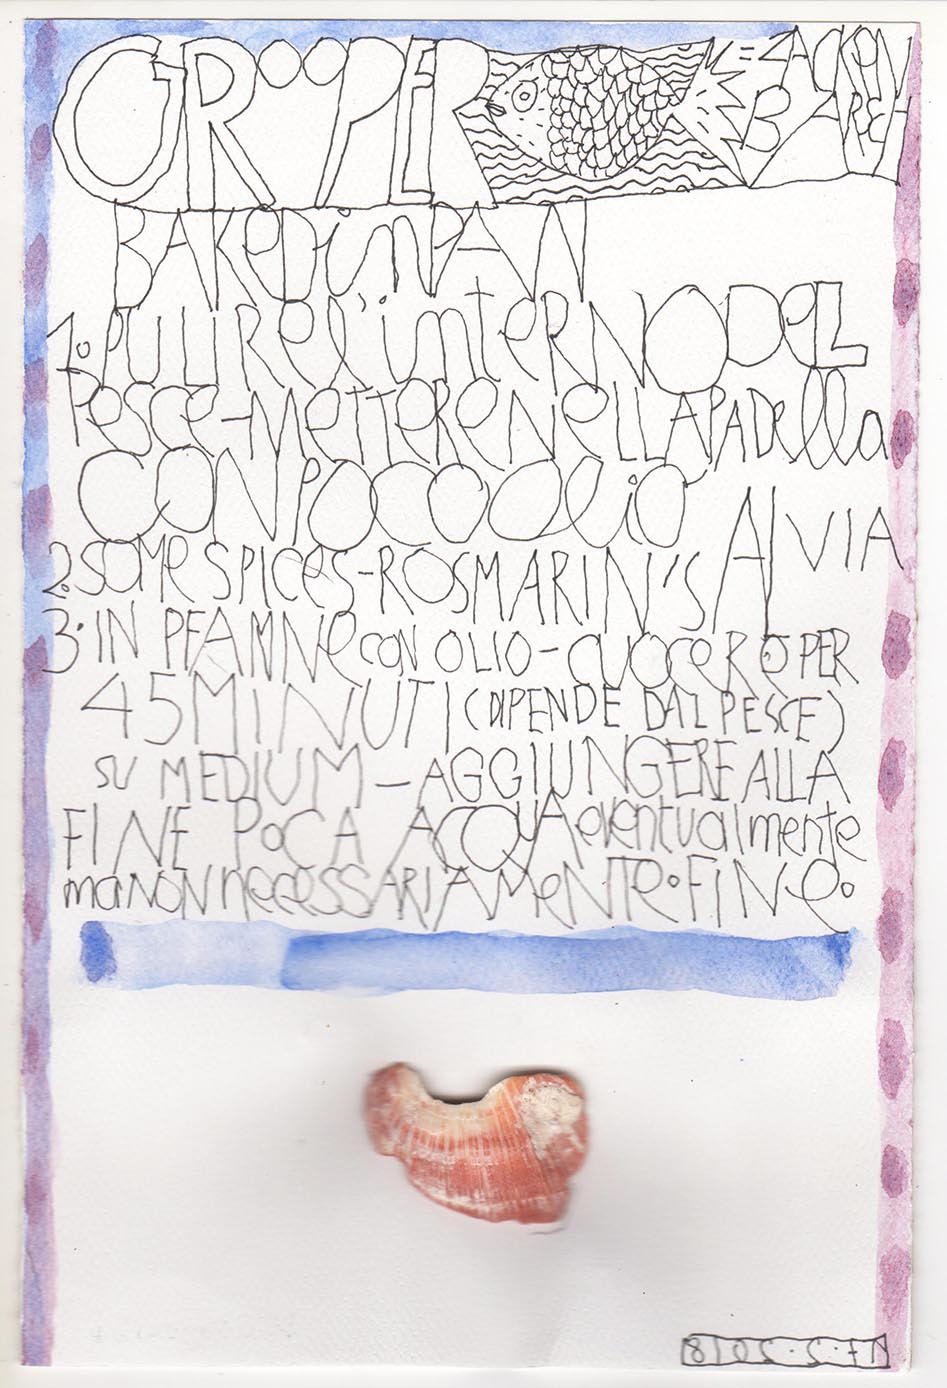 GRÖÖPER = ZACKEN
BARSCH
BAKED in PAN
1. PULIRe l'inteRNO DeL
PesCe-MeTTERe NeLLA PADella
CON POCO OLiO
2. SOMe SPICeS-ROSMARIN'SALVIA
3. IN PFANNe CON OLIO-CUOCeRO PER
45 MINUTI (DIPENDE DAL PESCE)
SU MEDIUM - AGGIUNGERE ALLA
FINE POCA ACQUA eventualmente
ma NON neceSSARIAMeNTe. FINe.